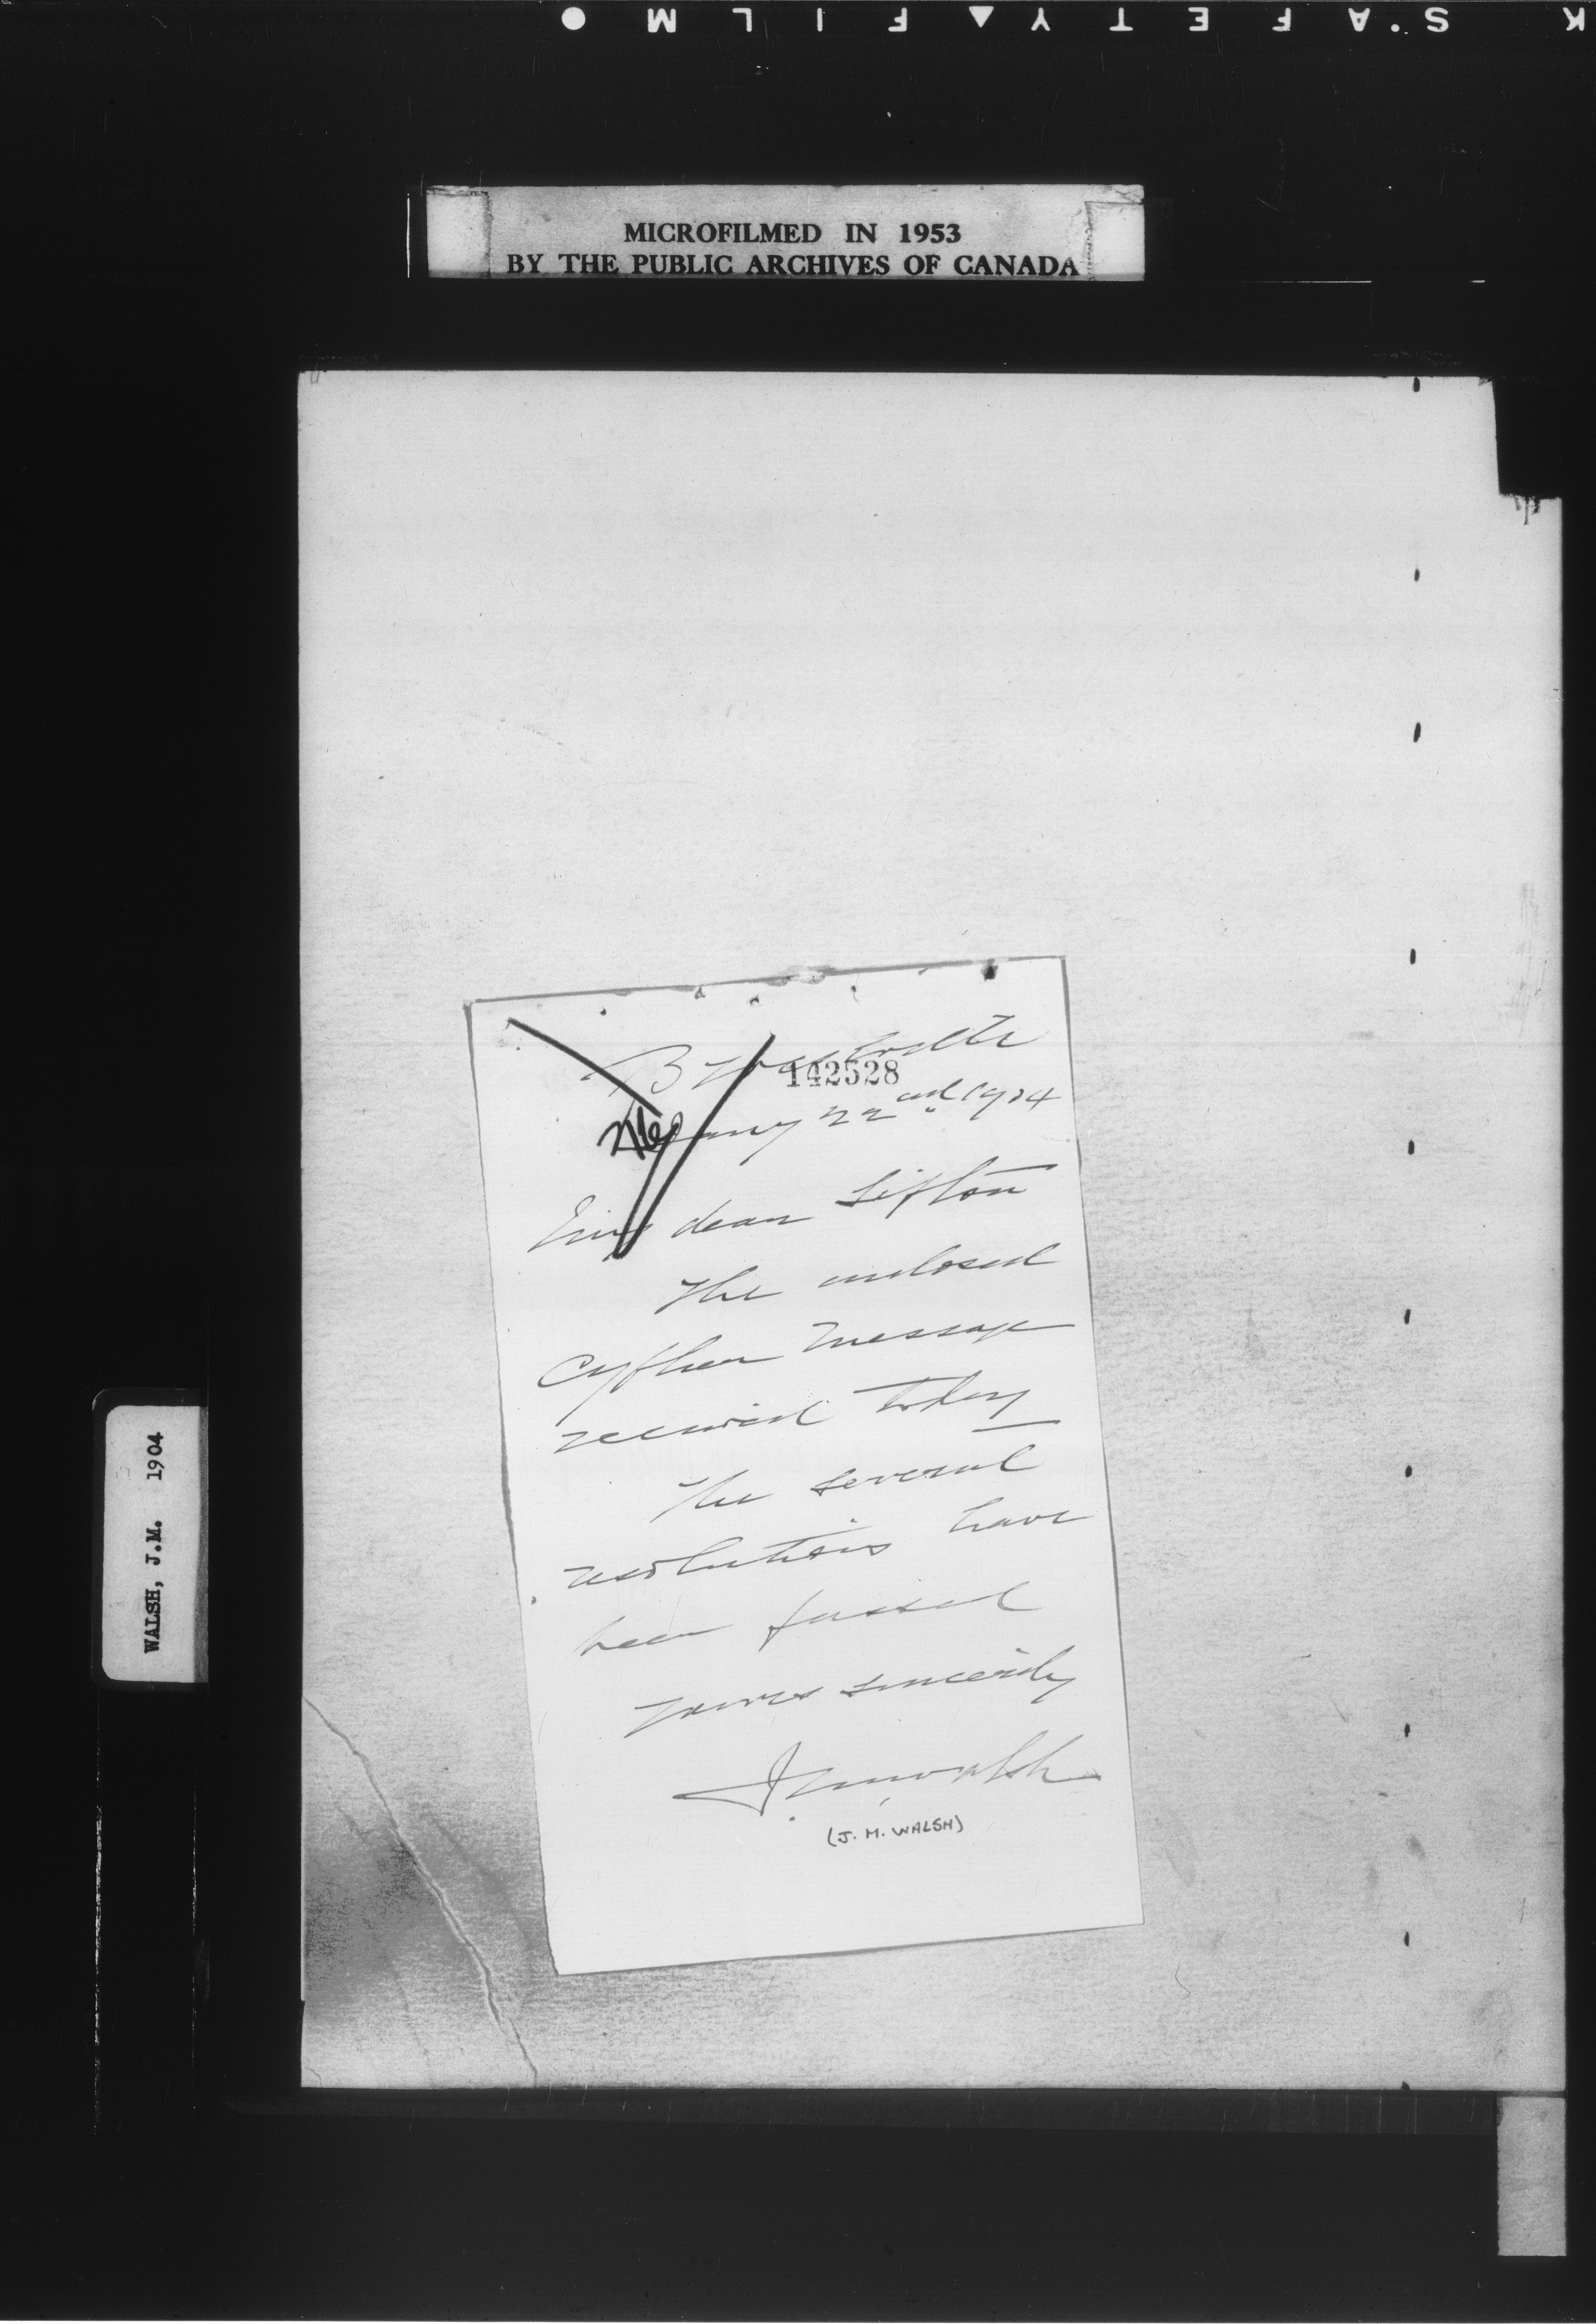 K S'.AFETY▲FILM●
MICROFILMED IN 1953
BY THE PUBLIC ARCHIVES OF CANADA
WALSH, J.M. 1904
Brockville
142528
22nd 1904
My dear Sifton
The enclosed
cypher message
received today
The several
resolutions have
been passed
yours sincerely
J M Walsh
(J. M. WALSH)